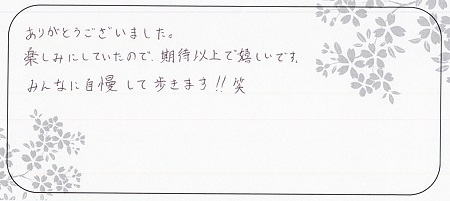 ありがとうございました。
楽しみにしていたので、期待以上で嬉しいです。
みんなに自慢して歩きます!!笑